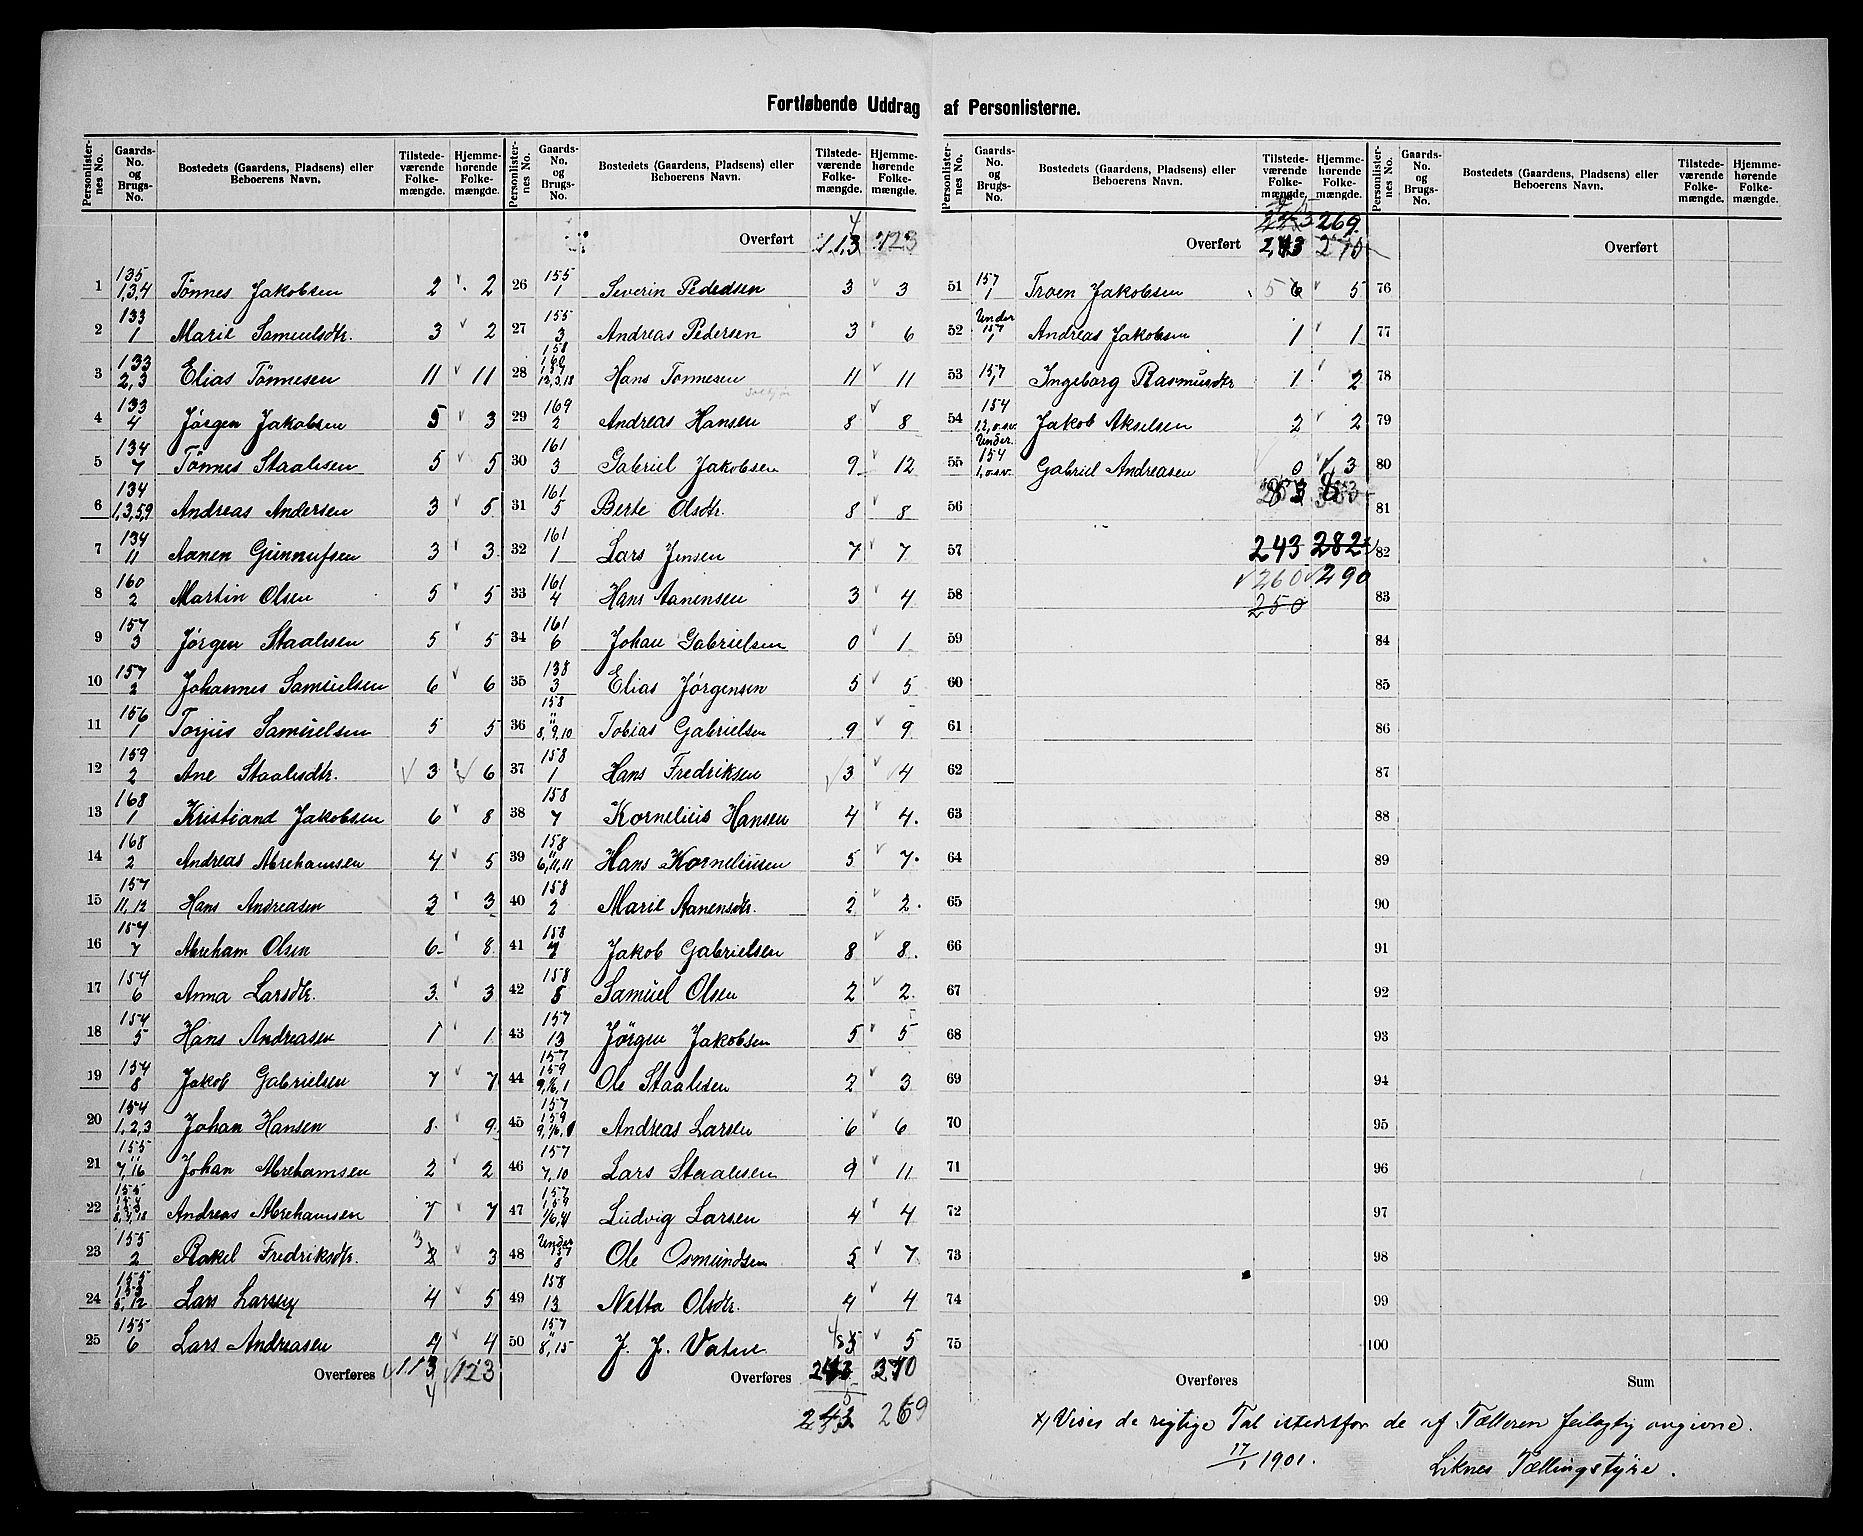 Fortløbende Uddrag af Personlisterne.
Personlister-nes No. Gaards-No. og Brugs-No. Bostedets (Gaardens, Pladsens) eller Beboerens Navn. Tilstede-værende Folke-mængde. Hjemme-hørende Folke-mængde.
1 135 1,3,4 Tönnes Jakobsen 2 2
2 133 1 Marie Samuelsdtr. 3 2
3 133 2,3 Elias Tönnesen 11 11
4 133 4 Jörgen Jakobsen 5 3
5 134 7 Tönnes Staalesen 5 5
6 134 1,3,5,9 Andreas Andersen 3 5
7 134 11 Aanen Gunnufsen 3 3
8 160 2 Martin Olsen 5 5
9 157 3 Jörgen Staalesen 5 5
10 157 2 Johannes Samuelsen 6 6
11 156 1 Torjus Samuelsen 5 5
12 159 2 Ane Staalesdtr. 3 6
13 168 1 Kristiand Jakobsen 6 8
14 168 2 Andreas Abrehamsen 4 5
15 157 11,12 Hans Andreasen 3
16 154 7 Abreham Olsen 6 8
17 154 6 Anna Larsdtr. 3 3
18 154 5 Hans Andreasen 1 1
19 154 8 Jakob Gabrielsen 7 7
20 154 1,2,3 Johan Hansen 8 9
21 155 7,16 Johan Abrehamsen 2 2
22 155 Andreas Abrehamsen 7 7
23 155 2 Rakel Fredriksdtr. 3 2 3
24 155 5,12 Lars Larsen 4 5
25 155 6 Lars Andreasen 4 4
Overføres 113 123
4
Personlister-nes No. Gaards-No. og Brugs-No. Bostedets (Gaardens, Pladsens) eller Beboerens Navn. Tilstede-værende Folke-mængde. Hjemme-hørende Folke-mængde.
4
Overført 113 123
26 155 1 Severin Pedersen 3 3
27 155 3 Andreas Pedersen 3 6
28 158 160 Hans Tonnesen 11 11
29 169 2 Andreas Hansen 8 8
30 161 3 Gabriel Jakobsen 9 12
31 161 5 Berte Olsdtr. 8 8
32 161 1 Lars Jensen 7 7
33 161 4 Hans Aanensen 3 4
34 161 6 Johan Gabrielsen 0 1
35 138 3 Elias Jörgensen 5 5
36 158 8,9,10 Tobias Gabrielsen 9 9
37 158 1 Hans Fredriksen 3 4
38 158 7 Kornelius Hansen 4 4.
39 158 6,11,11 Hans Korneliusen 5 7.
40 158 2 Marie Aanensdtr. 2 2.
41 158 Jakob Gabrielsen 8 8.
42 158 8 Samuel Olsen 2 2.
43 157 13 Jörgen Jakobsen 5 5
44 157 159 Ole Staalesen 2 3
45 157 159 Andreas Larsen 6 6
46 157 7,10 Lars Staalesen 9 11
47 157 159 Ludvig Larsen 4 4
48 Under 157 8 Ole Osmundsen 5 7
49 158 13 Netta Olsdtr. 4 4
50 157 8,15 J. J. Vatne 5 5
Overføres 243 270
243 269
Personlister-nes No. Gaards-No. og Brugs-No. Bostedets (Gaardens, Pladsens) eller Beboerens Navn. Tilstede-værende Folke-mængde. Hjemme-hørende Folke-mængde.
269
Overført 243 270
51 157 1 Troen Jakobsen 5 6 5
52 Under 157 1 Andreas Jakobsen 1 1
53 157 1 Ingeborg Rasmusdtr 1 2
54 154 1,2,o.sv. Jakob Akselsen 2 2
55 Under 154 1,o.s.v. Gabriel Andreasen 0 3
56
57 243 282
260 290
58 250
59
60
61
62
63
64
65
66
67
68
69
70
71
72
73
74
75
Overføres
Personlister-nes No. Gaards-No. og Brugs-No. Bostedets (Gaardens, Pladsens) eller Beboerens Navn. Tilstede-værende Folke-mængde. Hjemme-hørende Folke-mængde.
Overført
76
77
78
79
80
81
82
83
84
85
86
87
88
89
90
91
92
93
94
95
96
97
98
99
100
Sum
x) Vises de rigtige Tal istedetfor de af Tælleren feilagtig angivne.
17/1 1901. Liknes Tællingstyre.